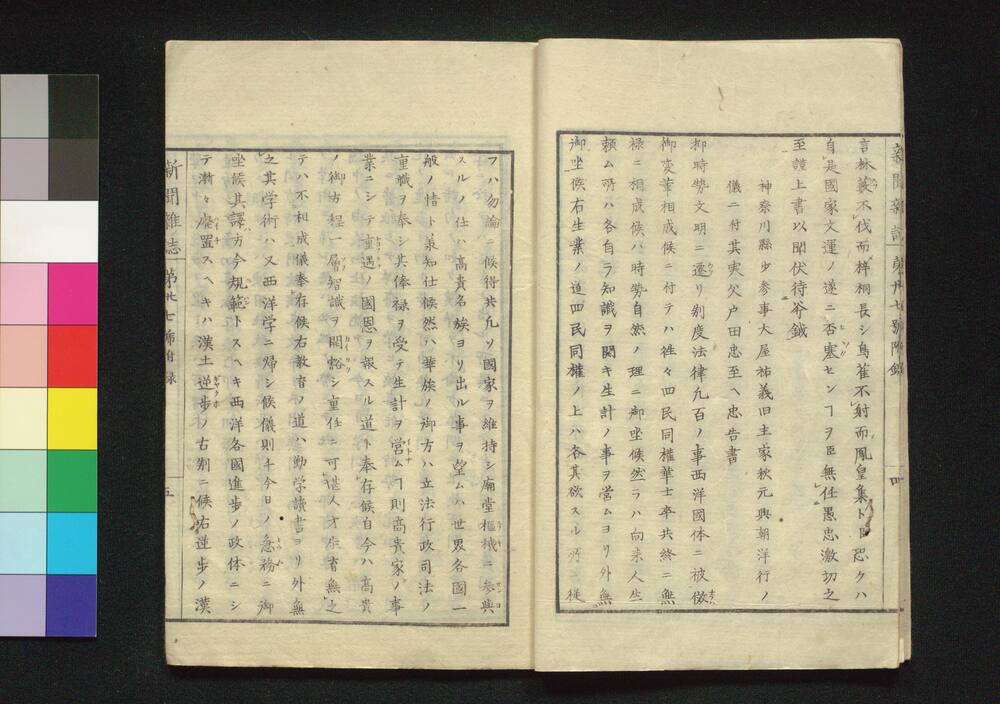 新聞雑誌 第廿七號附録 四
言棘蓁不伐而梓桐長シ鳥雀不射而鳳皇集ト臣恐クハ
自是國家文運ノ遂ニ否塞セン ヿヲ臣無任愚忠激切之
至謹上書以聞伏待斧鉞
神奈川縣少参事大屋祐義旧主家秋元興朝洋行ノ
儀ニ付其実父戸田忠至ヘ忠告書
抑時勢文明ニ遷リ別度法律九百ノ事西洋國体ニ被倣
御変革相成候ニ付テハ徃々四民同權華士卒共終ニ無
禄ニ相成候ハ時勢自然ノ理ニ御坐候然ラハ向来人生
頼ム所ハ各自ラ知識ヲ開キ生計ノ事ヲ営ムヨリ外無
御坐候右生業ノ道四民同權ノ上ハ各其欲スル所ニ従
フハ勿論ニ候得共凡ソ國家ヲ維持シ廟堂樞機ニ参與
スルノ仕ハ高貴名族ヨリ出ル事ヲ望ムハ世界各國一
般ノ情ト兼知仕候然ハ華族ノ御方ハ立法行政司法ノ
重職ヲ奉シ其俸禄ヲ受テ生計ヲ営ムヿ則高貴家ノ事
業ニシテ重遇ノ國恩ヲ報スル道ト奉存候自今ハ高貴
ノ御方程一層智識ヲ開豁シ重任ニ可堪人才ニ無之
テハ不相成儀奉存候右教育ノ道ハ勤学讀書ヨリ外無
之其学術ハ又西洋学ニ帰シ候儀則チ今日ノ急務ニ御
坐候其譯方今規範トスヘキ西洋各國進歩ノ政体ニシ
テ漸々廃置スヘキハ漢土逆歩ノ古制ニ候右逆歩ノ漢
新聞雑誌 第廿七號附録 五